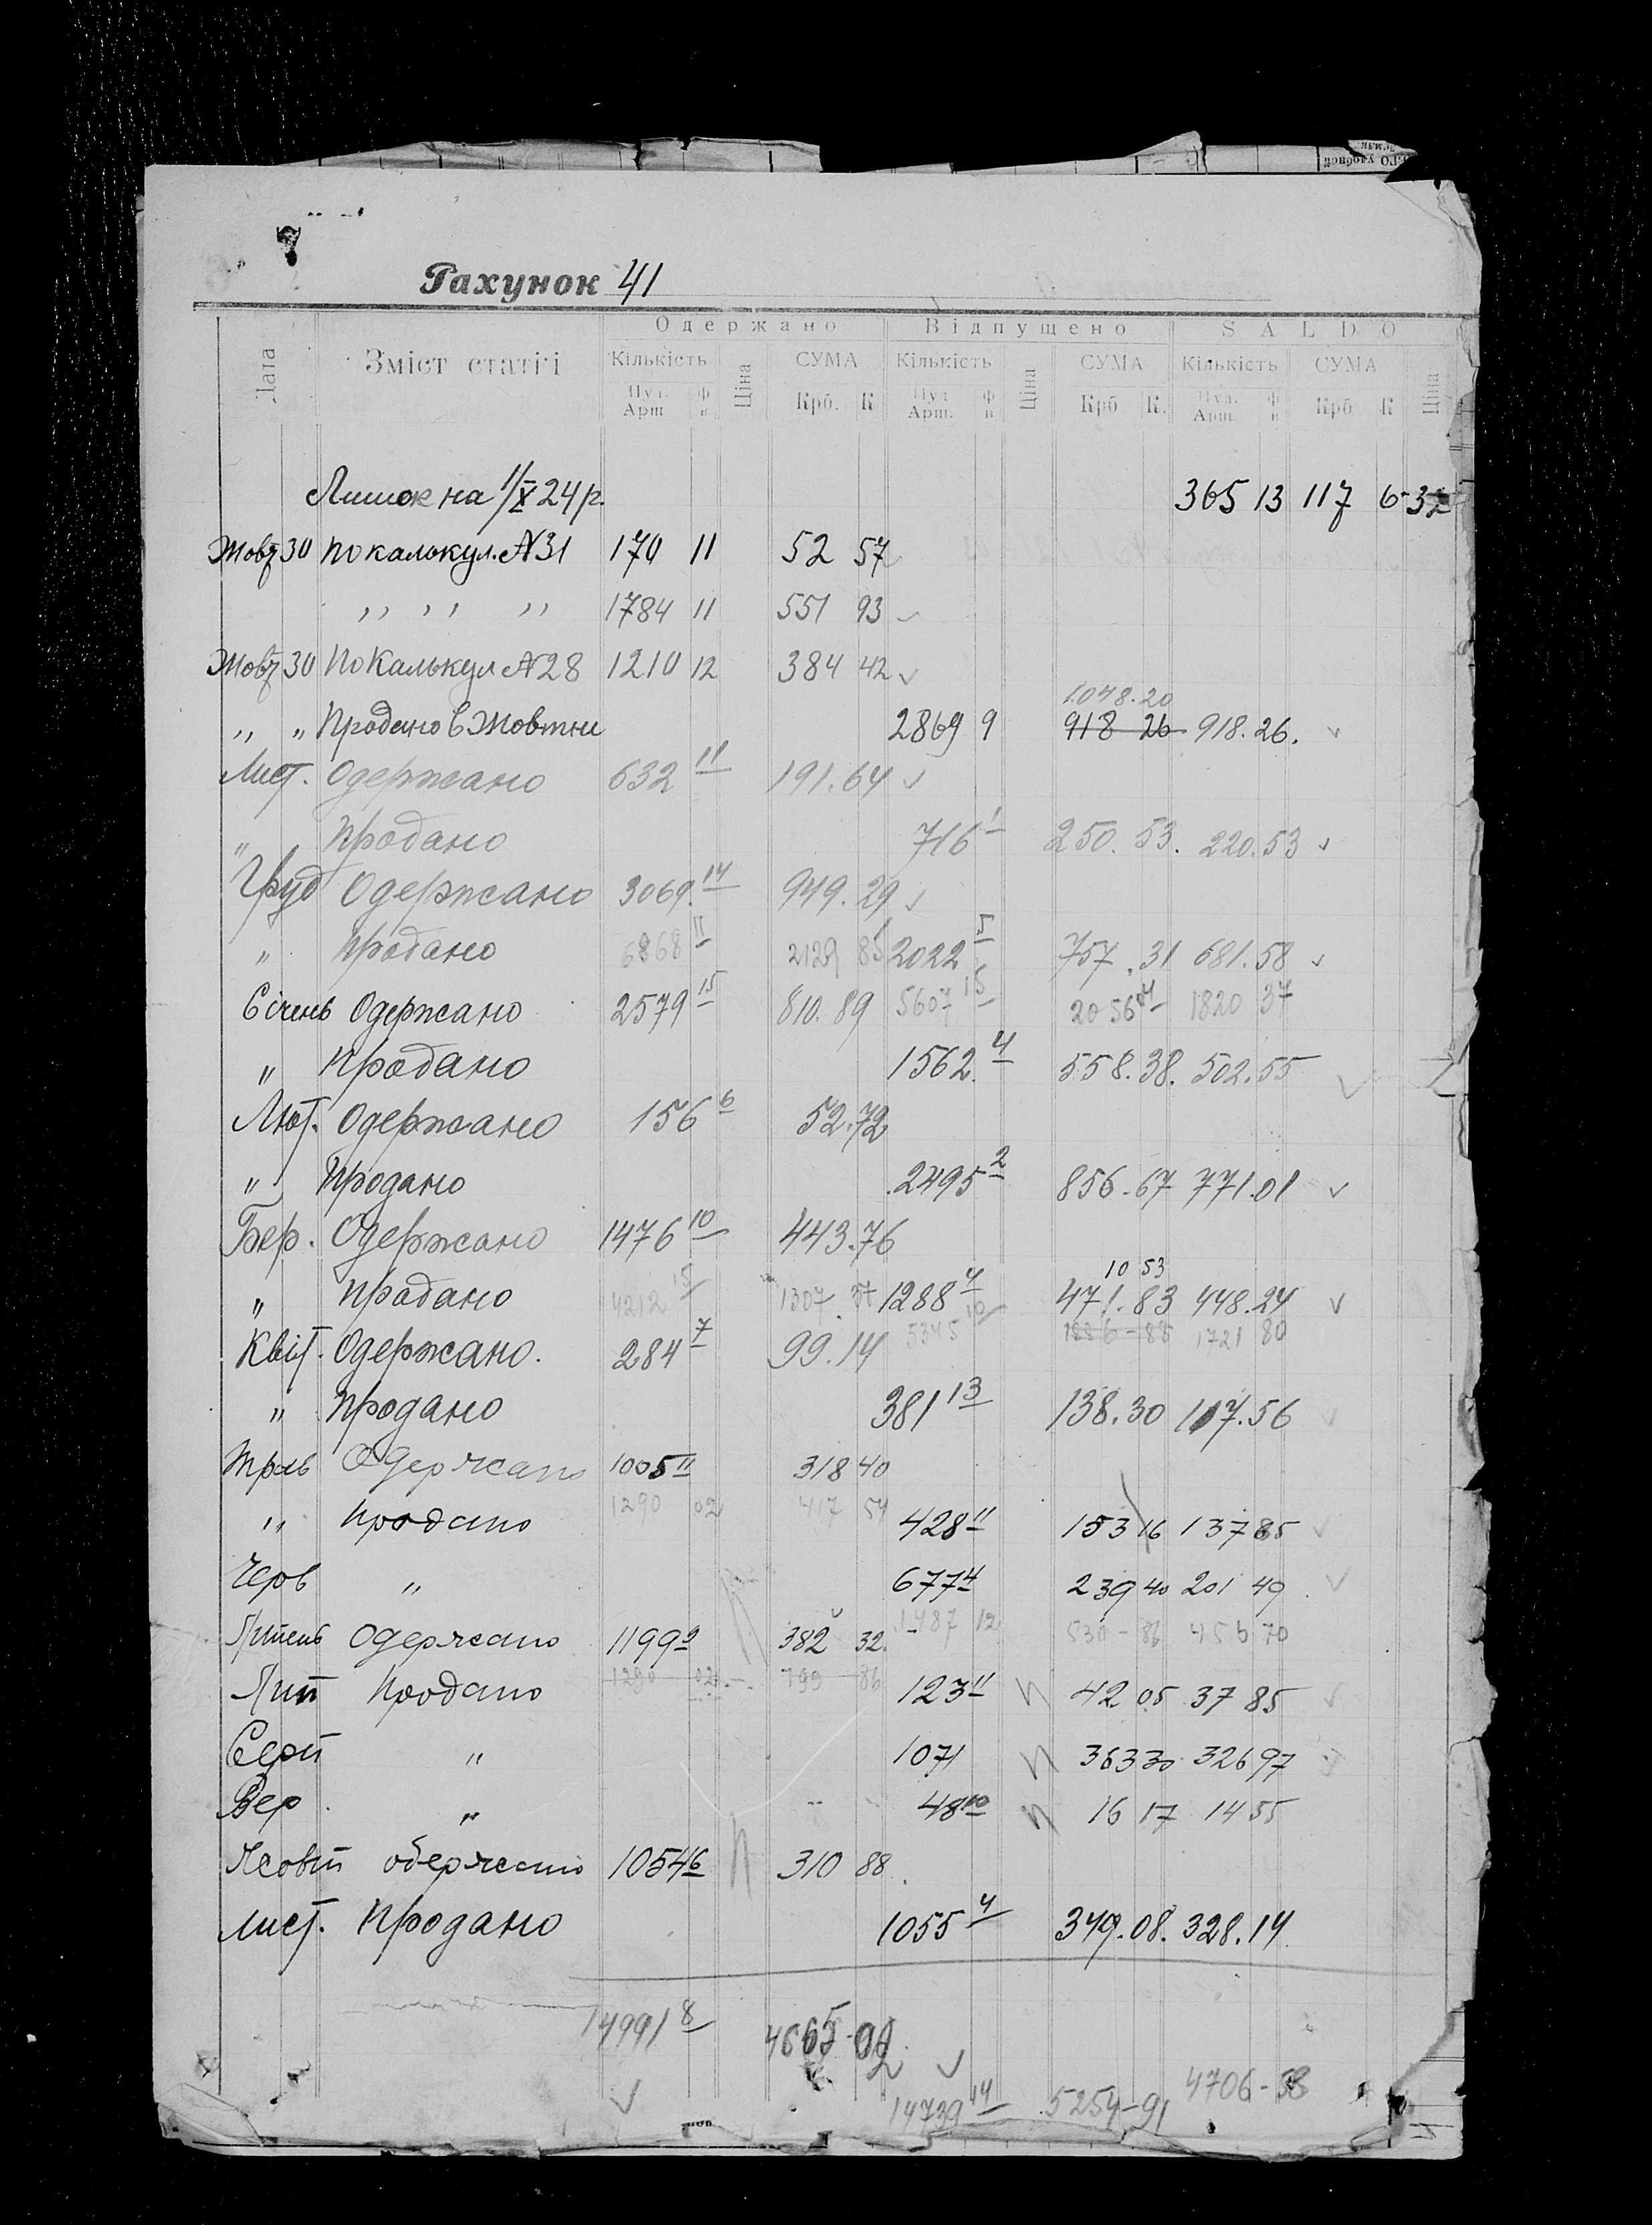 Рахунок 41
Одержано Відпущено SALDO
Дата Зміст статті Кількість Ціна СУМА Кількість Ціна СУМА Кількість СУМА Ціна
Пуд. Арш ф в Крб. К Пуд Арш. ф в Крб К. Пуд. Арш ф в Крб К
Лишок на 1/X 24 р. 365 13 117 6-32
Жовт 30 по калькул. №31 170 11 52 57
,, ,, ,, 1784 11 551 93
Жовт 30 по Калькул №28 1210 12 384 42
1048.20
,, ,, Продано в Жовтни 2869 9 918 26 918.26.
Лист. Одержано 632 11 191.64
,, Продано 716 1 250.53. 220.53
Груд Одержано 3069. 14 949.29
,, Продано 6868 11 2129 85 2022 5 757.31 681.58
Січень Одержано 2579 15 810.89 5607 15 2056 44 1820 37
,, Продано 1562. 4 558.38. 502.55
Лют. Одержано 156 6 52.72
,, Продано 2495 2 856.67 771.01
Бер. Одержано 1476 10 443.76
10 53
,, Продано 4212 15 1307. 37 1288 4 471.83 448.24
Квіт. Одержано. 284 7 99.14 5345 10 1886-88 1721 80
,, Продано 381 13 138.30 117.56
Трав Одержано 1005 11 318 40
,, Продано 1290 02 417 54 428 11 153 16 137 85
Черв ,, 677 4 239 40 201 49
Липень Одержано 1199 9 382 32. 1487 12 530-86 456 70
Лип Продано 1290 02 799 86 123 11 42 05 37 85
Серп ,, 1071 363 30 326 97
Вер ,, 48 10 16 17 14 55
Жовт одержано 1054 6 310 88
Лист. Продано 1055 4 349.08. 328.14
14991 8 4665-02
14739 14 5254-91 4706-58